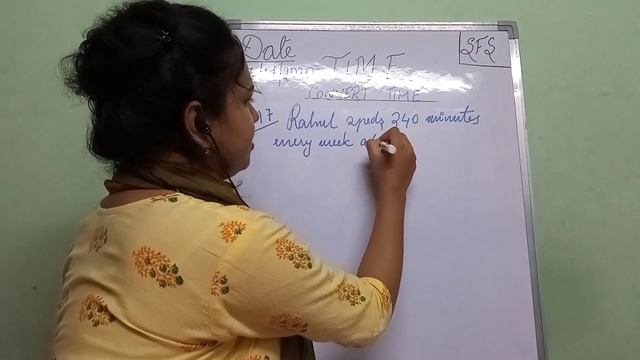 Date
SFS
TIME
CONVERT TIME
17 Rahul speds 240 minutes
every week